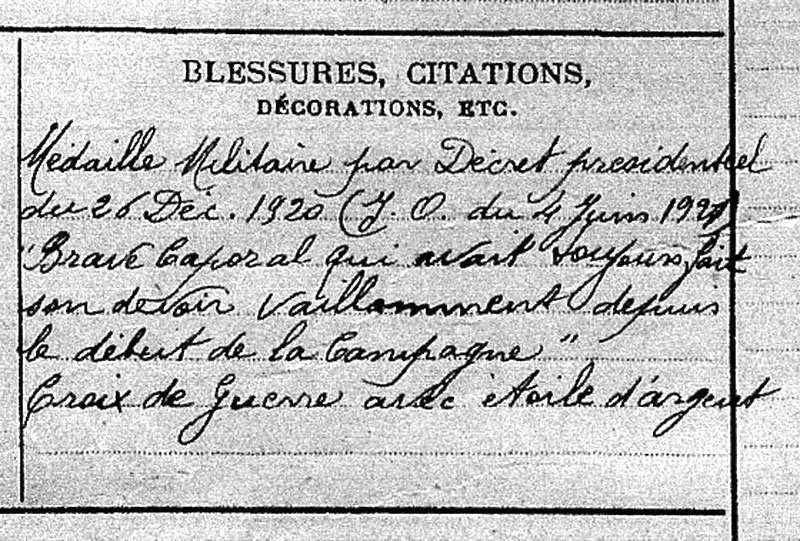 BLESSURES, CITATIONS,
DÉCORATIONS, ETC.
Médaille Militaire par Décret presidentiel
du 26 Déc. 1920 (J. O. du 4 Juin 1921)
"Brave Caporal qui avait toujours fait
son devoir vaillamment depuis
le début de la Campagne"
Croix de Guerre avec étoile d'argent